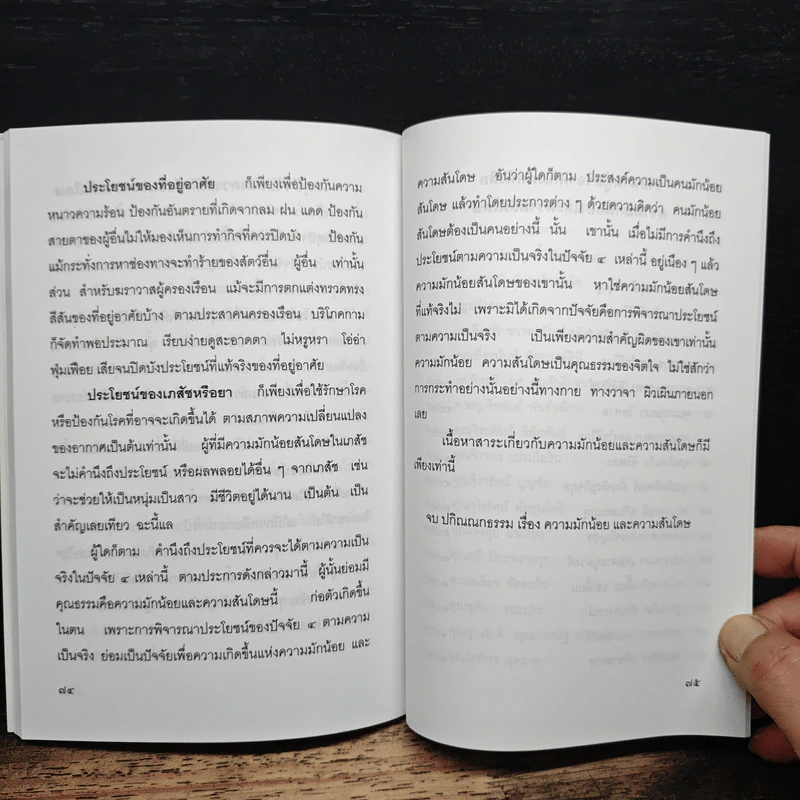 ประโยชน์ของที่อยู่อาศัย ก็เพียงเพื่อป้องกันความ
หนาวความร้อน ป้องกันอันตรายที่เกิดจากลม ฝน แดด ป้องกัน
สายตาของผู้อื่นไม่ให้มองเห็นการทำกิจที่ควรปิดบัง ป้องกัน
แม้กระทั่งการหาช่องทางจะทำร้ายของสัตว์อื่น ผู้อื่น เท่านั้น
ส่วน สำหรับฆราวาสผู้ครองเรือน แม้จะมีการตกแต่งทรวดทรง
สีสันของที่อยู่อาศัยบ้าง ตามประสาคนครองเรือน บริโภคกาม
ก็จัดทำพอประมาณ เรียบง่ายดูสะอาดตา ไม่หรูหรา โอ่อ่า
ฟุ่มเฟือย เสียจนปิดบังประโยชน์ที่แท้จริงของที่อยู่อาศัย
ประโยชน์ของเภสัชหรือยา ก็เพียงเพื่อใช้รักษาโรค
หรือป้องกันโรคที่อาจจะเกิดขึ้นได้ ตามสภาพความเปลี่ยนแปลง
ของอากาศเป็นต้นเท่านั้น ผู้ที่มีความมักน้อยสันโดษในเภสัช
จะไม่คำนึงถึงประโยชน์ หรือผลพลอยได้อื่น ๆ จากเภสัช เช่น
ว่าจะช่วยให้เป็นหนุ่มเป็นสาว มีชีวิตอยู่ได้นาน เป็นต้น เป็น
สำคัญเลยเทียว ฉะนี้แล
ผู้ใดก็ตาม คำนึงถึงประโยชน์ที่ควรจะได้ตามความเป็น
จริงในปัจจัย ๔ เหล่านี้ ตามประการดังกล่าวมานี้ ผู้นั้นย่อมมี
คุณธรรมคือความมักน้อยและความสันโดษนี้ ก่อตัวเกิดขึ้น
ในตน เพราะการพิจารณาประโยชน์ของปัจจัย ๔ ตามความ
เป็นจริง ย่อมเป็นปัจจัยเพื่อความเกิดขึ้นแห่งความมักน้อย และ
๗๔
ความสันโดษ อันว่าผู้ใดก็ตาม ประสงค์ความเป็นคนมักน้อย
สันโดษ แล้วทำโดยประการต่าง ๆ ด้วยความคิดว่า คนมักน้อย
สันโดษต้องเป็นคนอย่างนี้ นั้น เขานั้น เมื่อไม่มีการคำนึงถึง
ประโยชน์ตามความเป็นจริงในปัจจัย ๔ เหล่านี้ อยู่เนือง ๆ แล้ว
ความมักน้อยสันโดษของเขานั้น หาใช่ความมักน้อยสันโดษ
ที่แท้จริงไม่ เพราะมิได้เกิดจากปัจจัยคือการพิจารณาประโยชน์
ตามความเป็นจริง เป็นเพียงความสำคัญผิดของเขาเท่านั้น
ความมักน้อย ความสันโดษเป็นคุณธรรมของจิตใจ ไม่ใช่สักว่า
การกระทำอย่างนั้นอย่างนี้ทางกาย ทางวาจา ผิวเผินภายนอก
เลย
เนื้อหาสาระเกี่ยวกับความมักน้อยและความสันโดษก็มี
เพียงเท่านี้
จบ ปกิณณกธรรม เรื่อง ความมักน้อย และความสันโดษ
๗๕